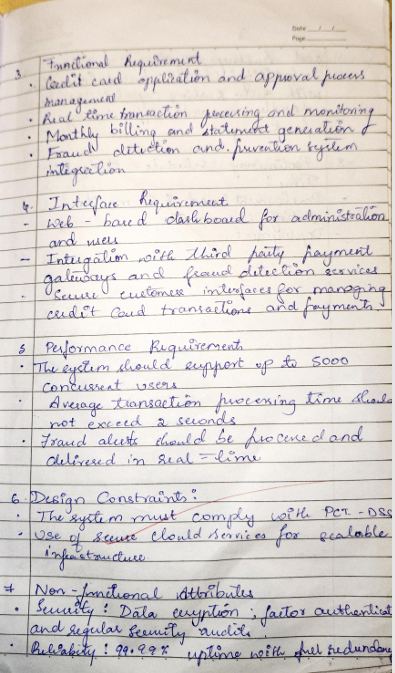 Date / /
Page
3. Functional Requirement
· Credit card application and approval process
management
· Real time transaction processing and monitoring
· Monthly billing and statement generation
· Fraud detection and prevention system
integration
4. Interface Requirement
- Web - based dashboard for administration
and users
- Intergation with third party payment
gateways and fraud detection services
- Secure customer interfaces for managing
credit card transactions and payments.
5 Performance Requirement
· The system should support up to 5000
concurrent users
· Average transaction processing time should
not exceed 2 seconds
· Fraud alerts should be processed and
delivered in real-time
6. Design Constraints:
· The system must comply with PCI-DSS
· Use of secure clould services for scalable
infrastructure
7 Non-functional Attributes
· Security: Data encryption, factor authenticat
and regular security audits.
· Reliability: 99.99% uptime with fuel redundancy